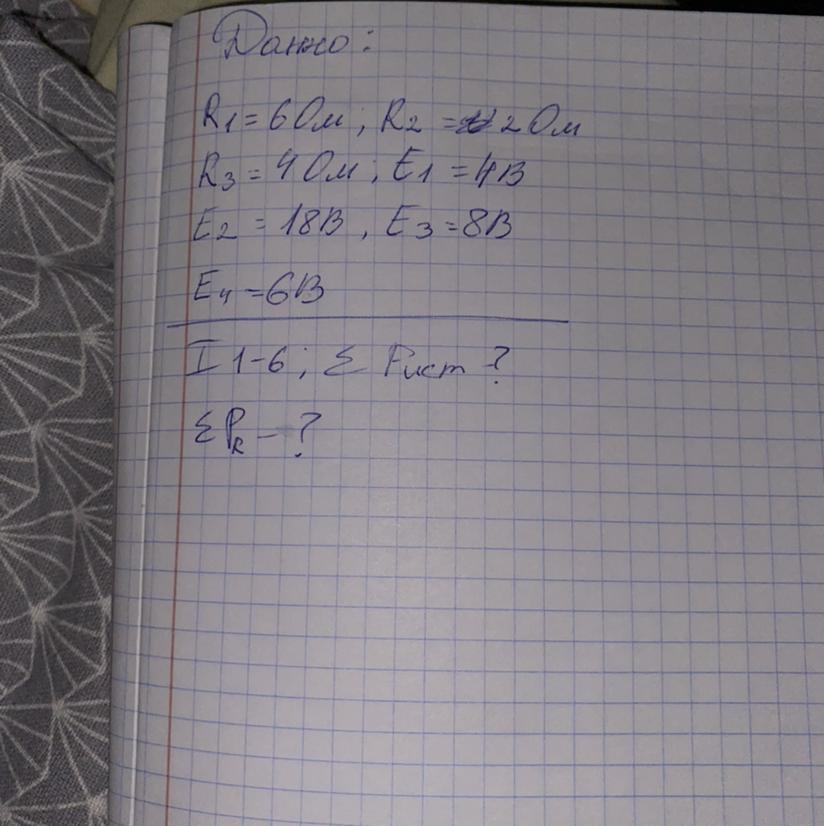 Дано:
R1 = 6 Ом ; R2 = 2 Ом
R3 = 4 Ом ; E1 = 4В
E2 = 18В , E3 = 8В
E4 = 6В
I 1-6 ; Σ Pист ?
ΣPR - ?